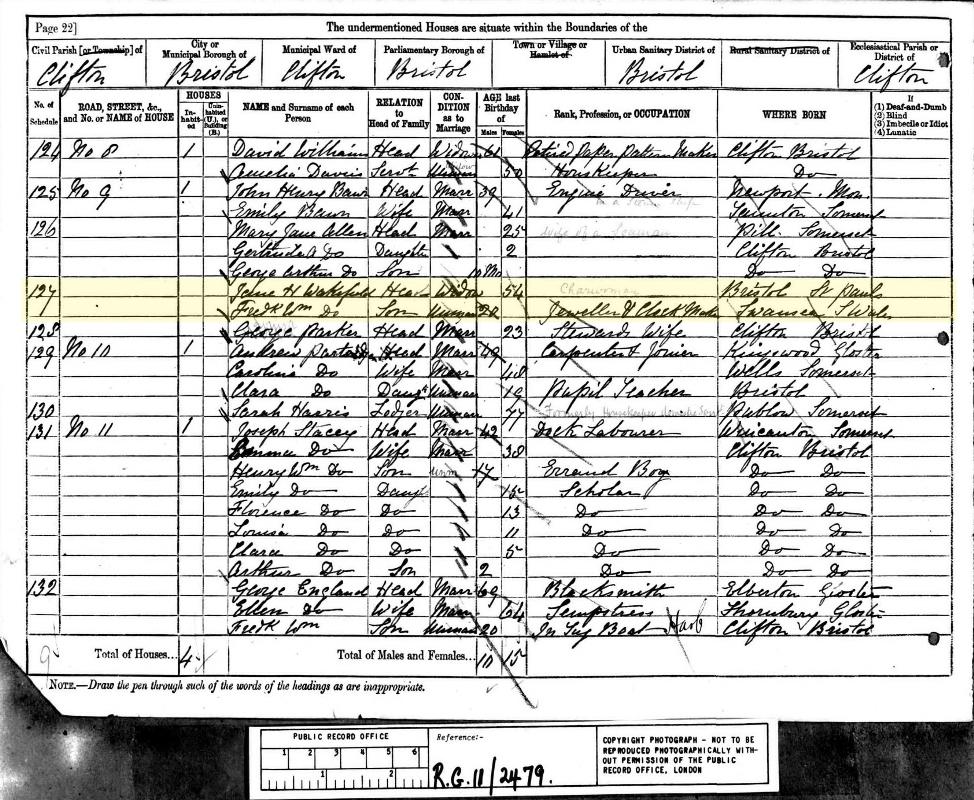 Page 22] The undermentioned Houses are situate within the Boundaries of the
Civil Parish [or Township] of City or Municipal Borough of Municipal Ward of Parliamentary Borough of Town or Village or Hamlet of Urban Sanitary District of Rural Sanitary District of Ecclesiastical Parish or District of
Clifton Bristol Clifton Bristol Bristol Clifton
No. of Schedule ROAD, STREET, &c., and No. or NAME of HOUSE HOUSES In-habit-ed Unin-habited (U.), or Building (B.) NAME and Surname of each Person RELATION to Head of Family CON-DITION as to Marriage AGE last Birthday of Males Females Rank, Profession, or OCCUPATION WHERE BORN If (1) Deaf-and-Dumb (2) Blind (3) Imbecile or Idiot (4) Lunatic
124 No 8 1 David Williams Head Widowr 61 Retired Paper Pattern Maker Clifton Bristol
Amelia Davis Servt 50 HousKeeper Do
125 No 9 1 John Henry Head Marr 39 Engine Driver Newport Mon
Emily Wife Marr 41 Taunton Somerset
126 Mary Jane Allen Head Marr 25 Wife of a Seaman Pill Somerset
Gertrude A Do Daughter 2 Clifton Bristol
George Arthur Do Son 10 Mo Do Do
127 Jane H Wakefield Head Widow 54 Charwoman Bristol St Pauls
Fredk Wm Do Son Unmar 20 Jeweller & Clock Make Swansea S Wales
128 George Parker Head Marr 23 Stewards Wife Clifton Bristol
129 No 10 1 Andrew Head Marr 49 Carpenter & Joiner Kingswood Gloster
Caroline Do Wife Marr 48 Wells Somerset
Clara Do Daugt Unmar 19 Pupil Teacher Bristol
130 Sarah Harris Lodger Unmar 77 Formerly Housekeeper domestic Servt Publow Somerset
131 No 11 1 Joseph Stacey Head Marr 42 Dock Labourer Wincanton Somerset
Emma Do Wife Marr 38 Clifton Bristol
Henry Wm Do Son Unm 17 Errand Boy Do Do
Emily Do Daugt 15 Scholar Do Do
Florence Do Do 13 Do Do Do
Louisa Do Do 11 Do Do Do
Clara Do Do 5 Do Do Do
Arthur Do Son 2 Do Do Do
132 George England Head Marr 69 Blacksmith Elberton Gloster
Ellen Do Wife Marr 64 Sempstress Thornbury Gloster
Fredk Wm Son Unmar 20 In Tug Boat Clifton Bristol
9 Total of Houses... 4 Total of Males and Females... 10 15
NOTE.—Draw the pen through such of the words of the headings as are inappropriate.
PUBLIC RECORD OFFICE
1 2 3 4 5 6
1 2
Reference:-
R.G. 11/2479.
COPYRIGHT PHOTOGRAPH - NOT TO BE
REPRODUCED PHOTOGRAPHICALLY WITH-
OUT PERMISSION OF THE PUBLIC
RECORD OFFICE, LONDON